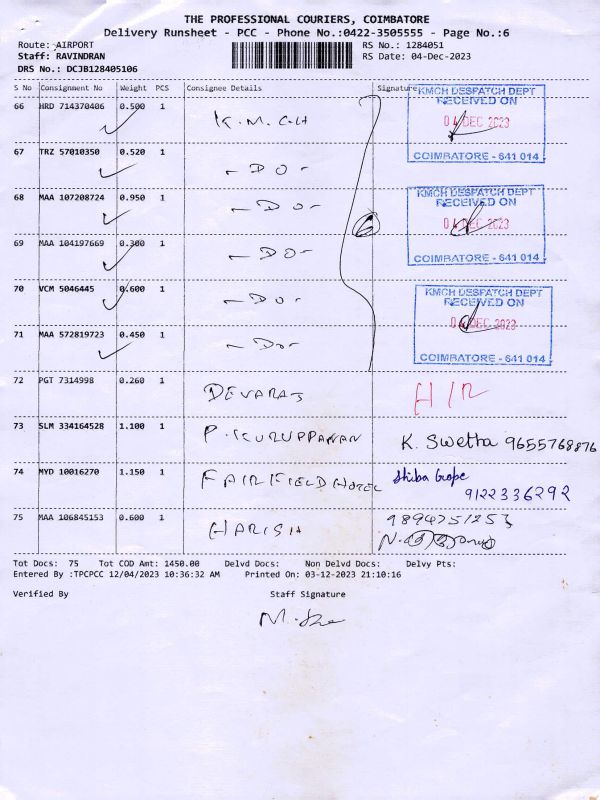 THE PROFESSIONAL COURIERS, COIMBATORE
Delivery Runsheet - PCC - Phone No.:0422-3505555 - Page No.:6
Route: AIRPORT RS No.: 1284051
Staff: RAVINDRAN RS Date: 04-Dec-2023
DRS No.: DCJB128405106
S No Consignment No Weight PCS Consignee Details Signature
KMCH DESPATCH DEPT
RECEIVED ON
66 HRD 714370406 0.500 1 K.M.C.H
04 DEC 2023
67 TRZ 57010350 0.520 1 - DO -
COIMBATORE - 641 014
68 MAA 107208724 0.950 1 - DO -
KMCH DESPATCH DEPT
RECEIVED ON
04 DEC 2023
69 MAA 104197669 0.300 1 - DO -
COIMBATORE - 641 014
70 VCM 5046445 0.600 1 - DO -
KMCH DESPATCH DEPT
RECEIVED ON
04 DEC 2023
71 MAA 572819723 0.450 1 - DO -
COIMBATORE - 641 014
6
72 PGT 7314998 0.260 1 DEVARAJ H/R
73 SLM 334164528 1.100 1 P.KURUPPANAN K. Swetha 9655768876
74 MYD 10016270 1.150 1 FAIRFIELD HOTEL Shiba Gope
9122336292
75 MAA 106845153 0.600 1 HARISH 9894751253
Tot Docs: 75 Tot COD Amt: 1450.00 Delvd Docs: Non Delvd Docs: Delvy Pts:
Entered By :TPCPCC 12/04/2023 10:36:32 AM Printed On: 03-12-2023 21:10:16
Verified By Staff Signature